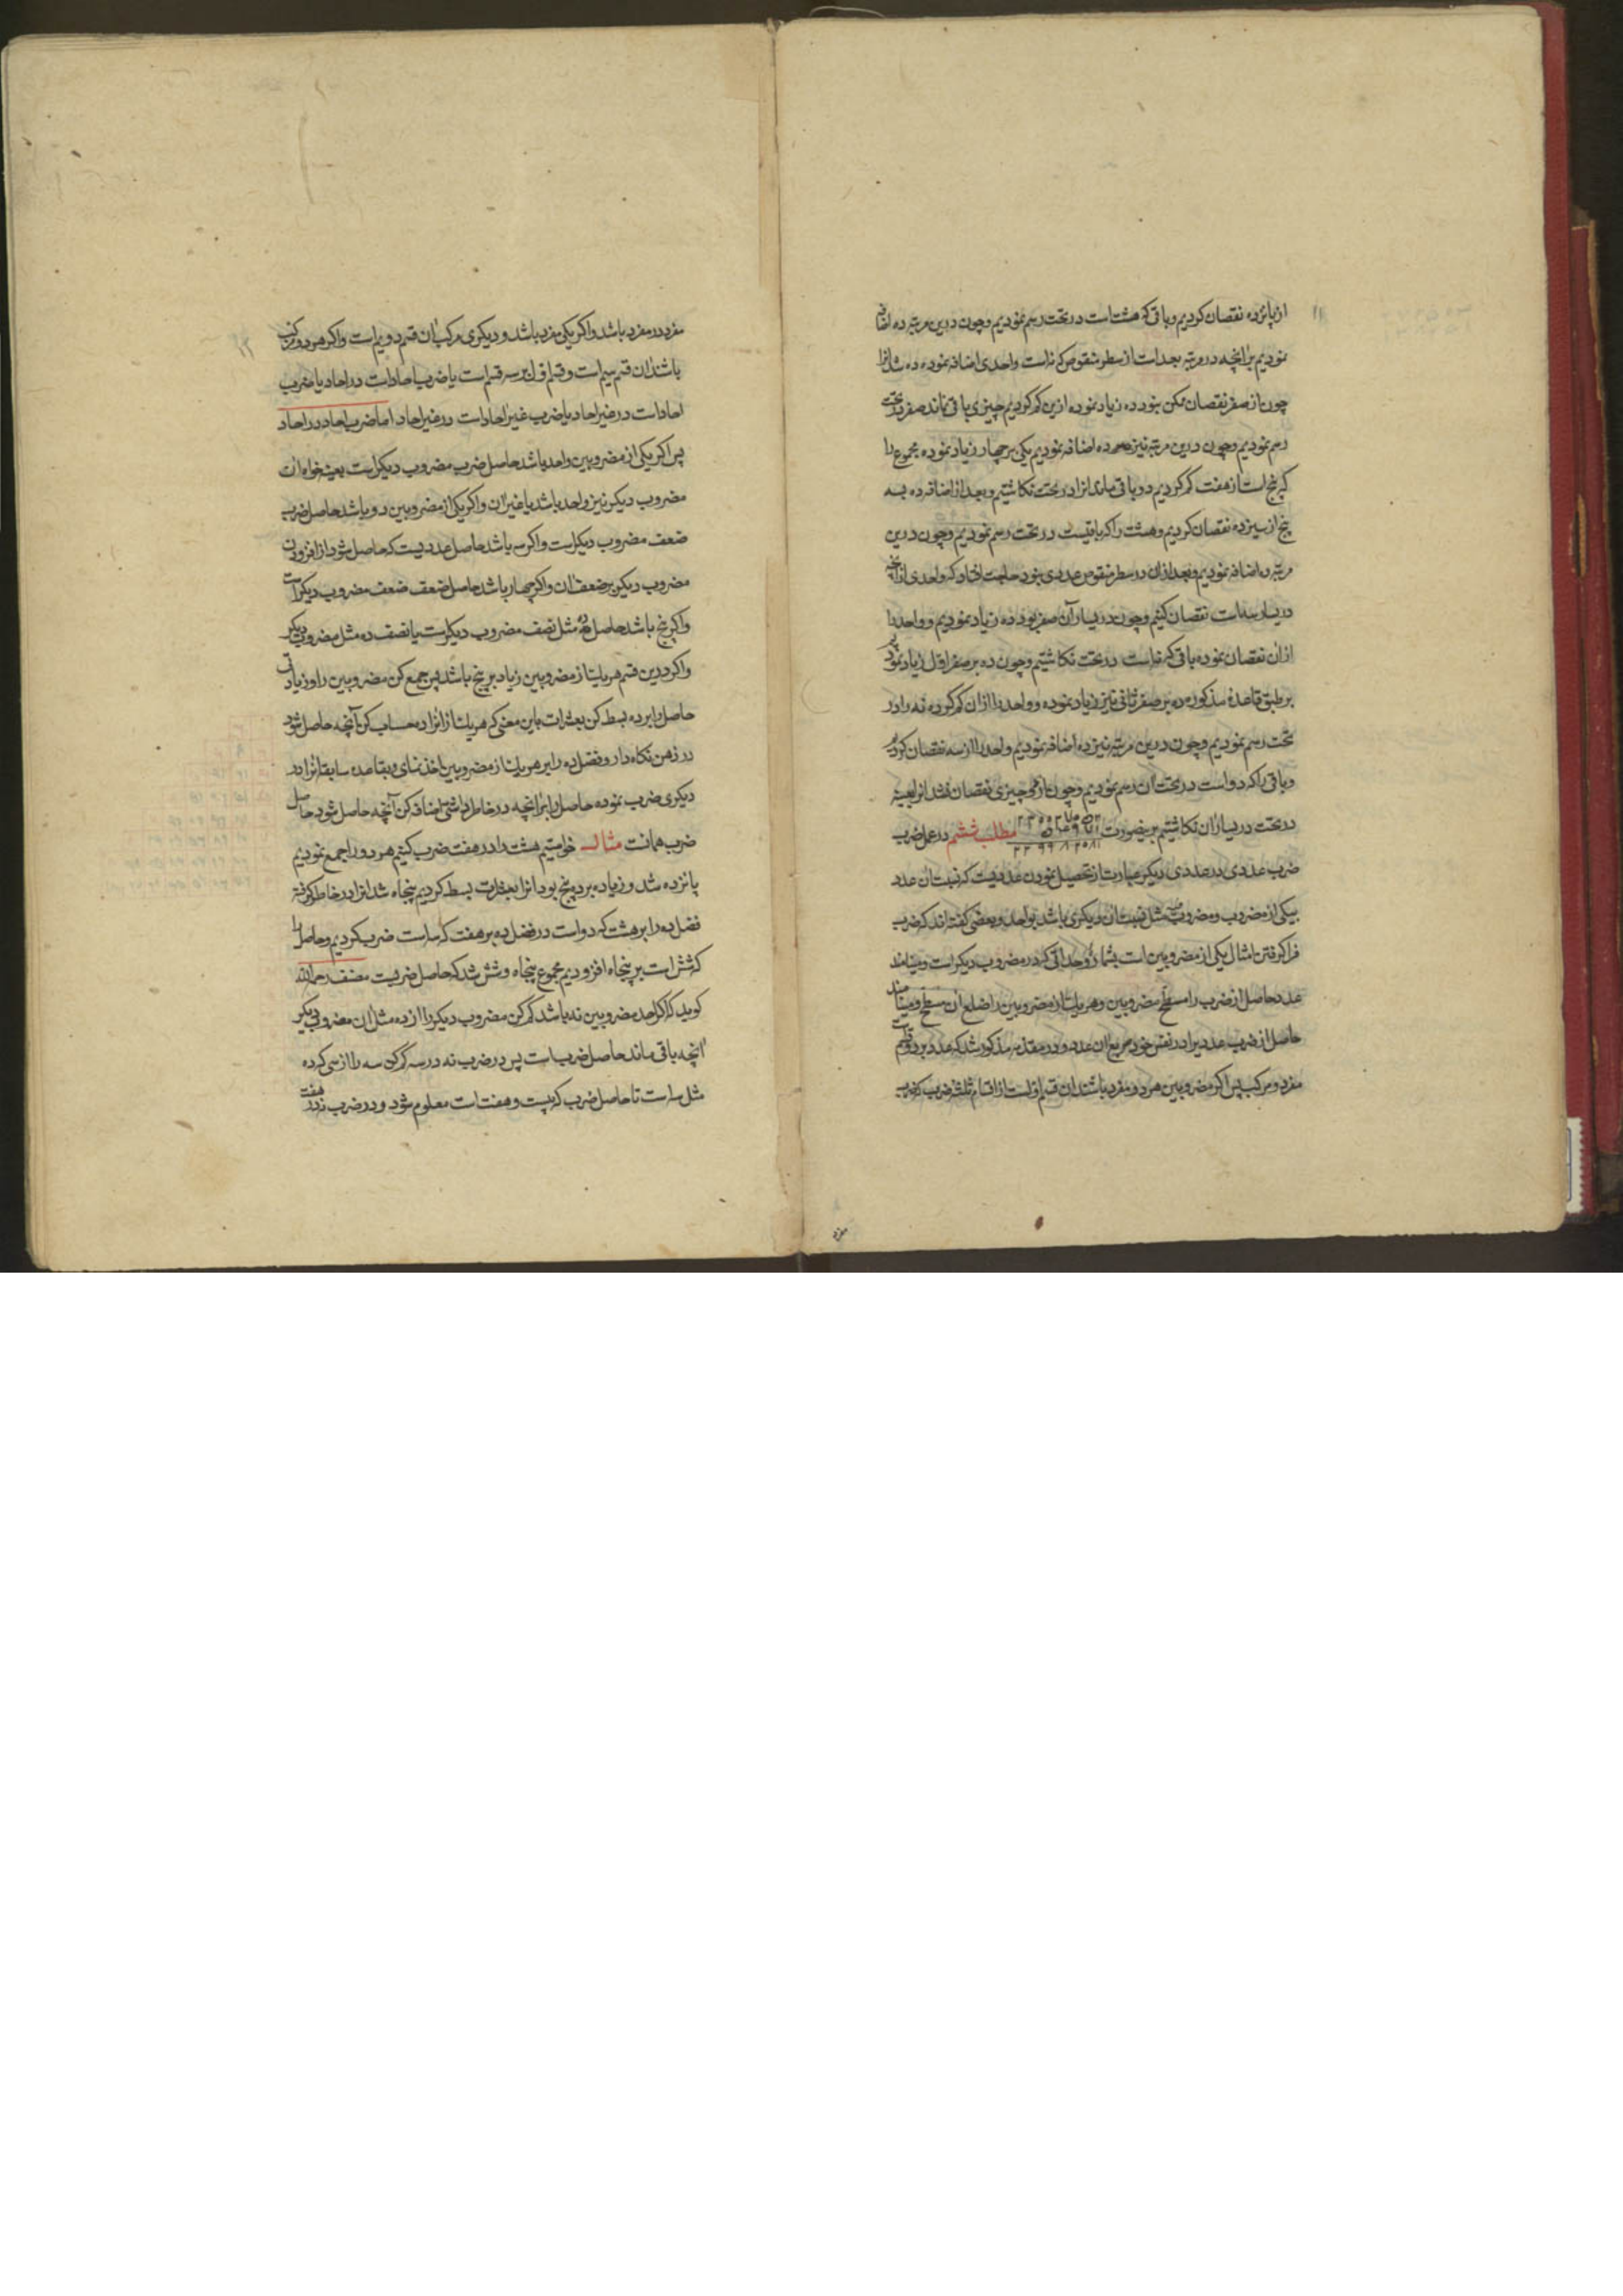 از پانزده نقصان کردیم و باقی که هشت است در تحت رسم نمودیم و چون درین مرتبه ده اضافه
نمودیم بر آنچه در مرتبه بعد است از سطر منقوص که نه است واحدی اضافه نموده ده شد انرا
چون از صفر نقصان ممکن نبود ده زیاد نموده ازین کم کردیم چیزی باقی نماند صفر در تحت
رسم نمودیم و چون درین مرتبه نیز ده اضافه نمودیم یکی بر چهار زیاد نموده مجموع را
که پنج است از هفت کم کردیم دو باقی ماند انرا در تحت نکاشتیم و بعد از اضافه ده بسه
پنج از سیزده نقصان کردیم و هشت را که باقیست در تحت رسم نمودیم و چون درین
مرتبه ده اضافه نمودیم و بعد ازان در سطر منقوص عددی نبود حاجت افتاد که واحدی از انچه
در یسار سه است نقصان کنیم و چون در یسار آن صفر بود ده زیاد نمودیم و واحد را
ازان نقصان نموده باقی که نه است در تحت نکاشتیم و چون ده بر صفر اول زیاد نمودیم
بر طبق قاعدهٔ مذکوره ده بر صفر ثانی نیز زیاد نموده و واحد را ازان کم کرده نه را در
تحت رسم نمودیم و چون درین مرتبه نیز ده اضافه نمودیم واحد را از سه نقصان کرده
و باقی را که دو است در تحت آن رسم نمودیم و چون از چیزی نقصان نشد انرا بعینه
در تحت در یسار ان نکاشتیم برینصورت مطلب ششم در عمل ضرب
ضرب عددی در عددی دیکر عبارت از تحصیل نمودن عددیست که نسبت ان عدد
بیکی از مضروب و مضروب فیه مثل نسبت ان دیکری باشد بواحد و بعضی کفته اند که ضرب
فرا کرفتن امثال یکی از مضروبین است بشمار وحداتی که در مضروب دیکر است و مینامند
عدد حاصل از ضرب را مسطح مضروبین و هر یک از مضروبین را ضلع ان مسطح و مینامند
حاصل از ضرب عددیرا در نفس خود مربع ان عدد و در مقدمه مذکور شد که عدد بر دو قسم است
مفرد و مرکب پس اکر مضروبین هر دو مفرد باشند ان قسم اول است از اقسام ثلثه ضرب که ضرب
مفرد
مفرد در مفرد باشد و اکر یکی مفرد باشد و دیکری مرکب ان قسم دویم است و اکر هر دو مرکب
باشند ان قسم سیم است و قسم اول بر سه قسم است یا ضرب احاد است در احاد یا ضرب
احاد است در غیر احاد یا ضرب غیر احاد است در غیر احاد اما ضرب احاد در احاد
پس اکر یکی از مضروبین واحد باشد حاصل ضرب مضروب دیکر است بعینه خواه ان
مضروب دیکر نیز واحد باشد یا غیر ان و اکر یکی از مضروبین دو باشد حاصل ضرب
ضعف مضروب دیکر است و اکر سه باشد حاصل عددیست که حاصل شود از افزودن
مضروب دیکر بر ضعف ان و اکر چهار باشد حاصل ضعف ضعف مضروب دیکر است
و اکر پنج باشد حاصل ده مثل نصف مضروب دیکر است یا نصف ده مثل مضروب دیکر
و اکر درین قسم هر یک از مضروبین زیاد بر پنج باشد پس جمع کن مضروبین را و زیادتی
حاصل را بر ده بسط کن بعشرات باین معنی که هر یک ازانرا ده حساب کن آنچه حاصل شود
در ذهن نکاه دار و فضل ده را بر هر یک از مضروبین اخذ نمای و بقاعده سابقه انرا در
دیکری ضرب نموده حاصل را بر انچه در خاطر داشتی اضافه کن آنچه حاصل شود حاصل
ضرب همانست مثال خواستیم هشت را در هفت ضرب کنیم هر دو را جمع نمودیم
پانزده شد و زیاده بر ده پنج بود انرا بعشرات بسط کردیم پنجاه شد انرا در خاطر کرفته
فضل ده را بر هشت که دو است در فضل ده بر هفت که سه است ضرب کردیم و حاصل را
که شش است بر پنجاه افزودیم مجموع پنجاه و شش شد که حاصل ضربست مصنف رحمه الله
کوید که اکر احد مضروبین نه باشد کم کن مضروب دیکر را از ده مثل ان مضروب دیکر
انچه باقی ماند حاصل ضرب است پس در ضرب نه در سه کم کن سه را از سی که ده
مثل سه است تا حاصل ضرب که بیست و هفت است معلوم شود و در ضرب نه در هفت